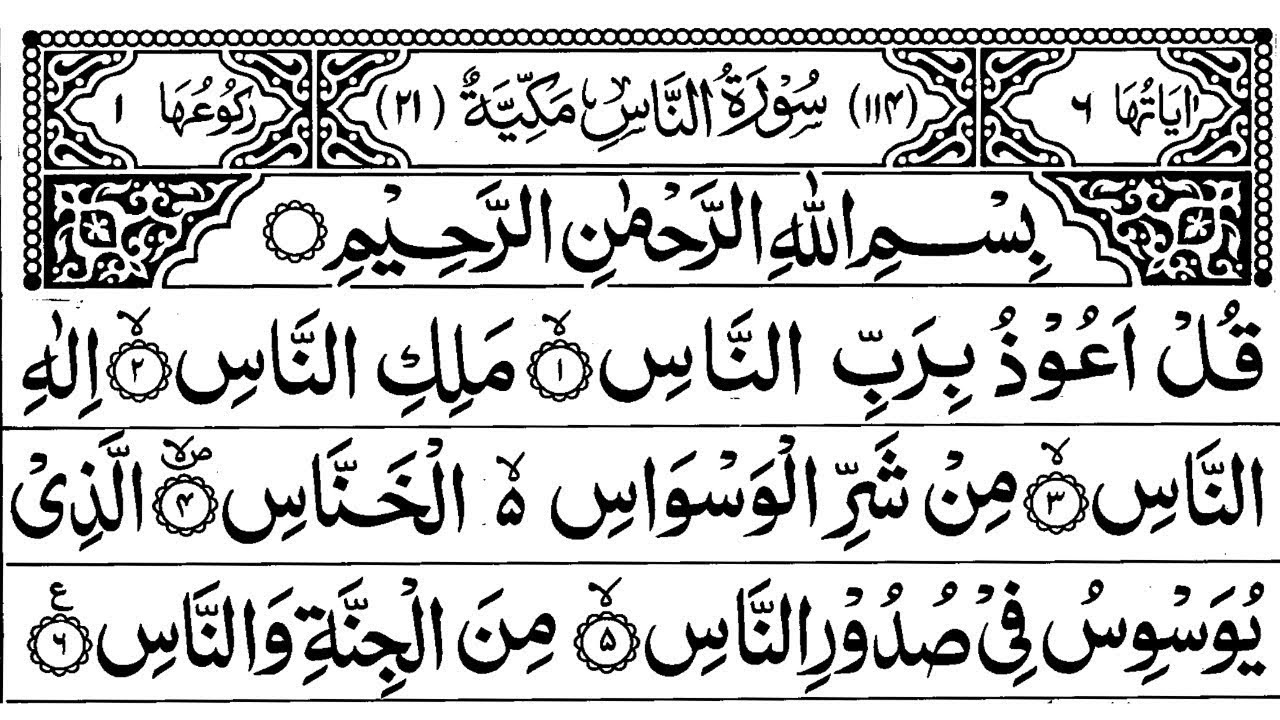 اٰيَاتُهَا ٦ (١١٤) سُوْرَةُ النَّاسِ مَكِّيَّةٌ (٢١) رُكُوْعُهَا ١
بِسْمِ اللّٰهِ الرَّحْمٰنِ الرَّحِيْمِ
قُلْ اَعُوْذُ بِرَبِّ النَّاسِ ۙ‏ ١ مَلِكِ النَّاسِ ۙ‏ ٢ اِلٰهِ
النَّاسِ ۙ‏ ٣ مِنْ شَرِّ الْوَسْوَاسِ ۙ۬ ۵ الْخَنَّاسِ ۪ۙ‏ ۴ الَّذِىْ
يُوَسْوِسُ فِىْ صُدُوْرِ النَّاسِ ۙ‏ ۵ مِنَ الْجِنَّةِ وَالنَّاسِ ٦ ع